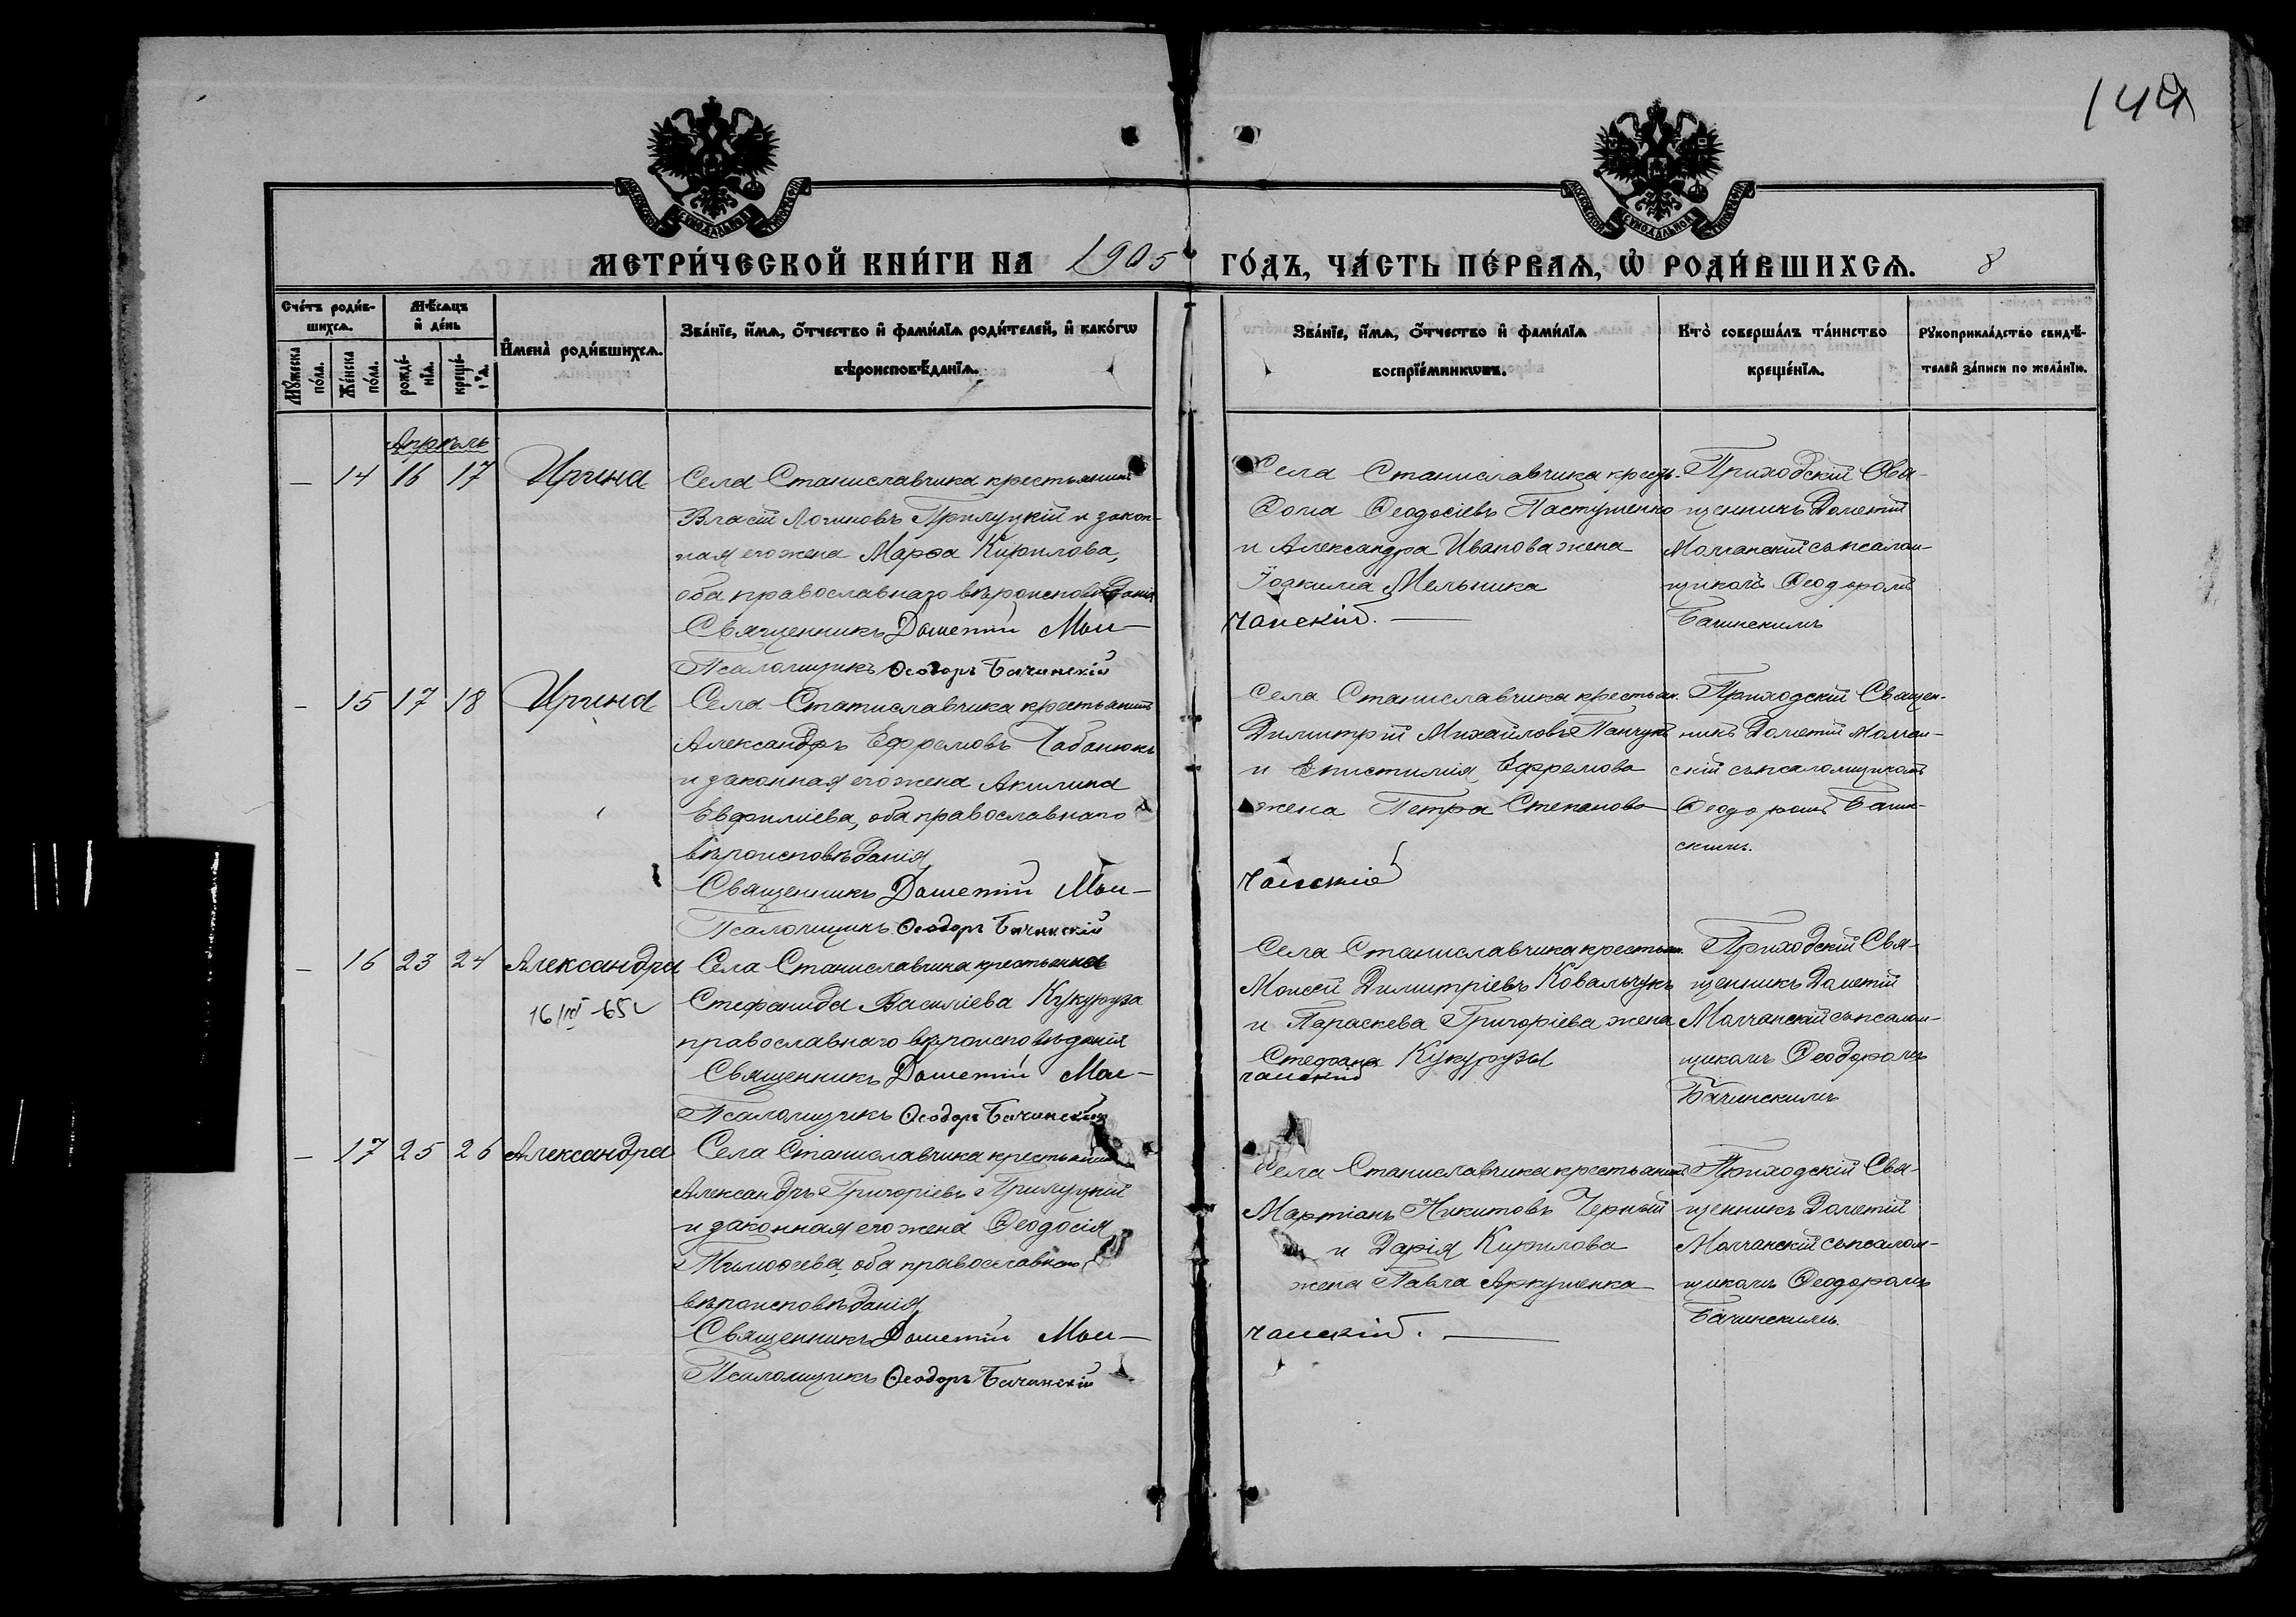 144
МОСКОВСКОЙ СѴНОДАЛЬНОЙ ТИПОГРАФІИ
МОСКОВСКОЙ СѴНОДАЛЬНОЙ ТИПОГРАФІИ
МЕТРИ́ЧЕСКОЙ КНИ́ГИ НА 1905 ГО́ДЪ, ЧА́СТЬ ПЕ́РВАѦ, Ѽ РОДИ́ВШИХСѦ. 8
Сче́тъ роди́в-
шихсѧ.
Мꙋ́жеска по́ла.
Же́нска по́ла.
Мѣ́сѧцъ
и҆ де́нь
рожде́-
нїѧ.
креще́-
нїѧ.
И҆мена̀ роди́вшихсѧ.
Зва́нїе, и҆́мѧ, о҆́тчество и҆ фами́лїѧ роди́телей, и҆ како́гѡ
вѣроисповѣ́данїѧ.
Зва́нїе, и҆́мѧ, о҆́тчество и҆ фами́лїѧ
воспрїе́мникѡвъ.
Кто̀ соверша́лъ та́инство
креще́нїѧ.
Рꙋкоприкла́дство свидѣ́-
телей за́писи по жела́нїю.
Апрѣль
— 14 16 17 Ирина
Села Станиславчика крестьянинъ
Власій Логиновъ Прилуцкій и закон-
ная его жена Марѳа Кирилова,
оба православнаго вѣроисповѣданія
Священникъ Дометій Мол-
Псаломщикъ Ѳеодоръ Бачинскій
Села Станиславчика крест.
Ѳома Ѳеодосіевъ Пастушенко
и Александра Иванова жена
Іоакима Мельника
чанскій.
Приходскій Свя-
щенникъ Дометій
Молчанскій съ псалом-
щикомъ Ѳеодоромъ
Бачинскимъ
— 15 17 18 Ирина
Села Станиславчика крестьянинъ
Александръ Ефремовъ Чабанюкъ
и законная его жена Акилина
Евфиміева, оба православнаго
вѣроисповѣданія
Священникъ Дометій Мол-
Псаломщикъ Ѳеодоръ Бачинскій
Села Станиславчика крестьян.
Димитрій Михайловъ Панчукъ
и Епистимія Ефремова
жена Петра Степанова
чанскій
Приходскій Священ-
никъ Дометій Молчан-
скій съ псаломщикомъ
Ѳеодоромъ Бачин-
скимъ.
— 16 23 24 Александра
16/IV-65
Села Станиславчика крестьянка
Стефанида Василіева Кукуруза
православнаго вѣроисповѣданія
Священникъ Дометій Мол-
Псаломщикъ Ѳеодоръ Бачинскій
Села Станиславчика крестьян.
Моисей Димитріевъ Ковальчукъ
и Параскева Григоріева жена
Стефана Кукурузы
чанскій
Приходскій Свя-
щенникъ Дометій
Молчанскій съ псалом-
щикомъ Ѳеодоромъ
Бачинскимъ
— 17 25 26 Александра
Села Станиславчика крестьянинъ
Александръ Григоріевъ Прилуцкій
и законная его жена Ѳеодосія
Тимоѳеева, оба православнаго
вѣроисповѣданія
Священникъ Дометій Мол-
Псаломщикъ Ѳеодоръ Бачинскій
Села Станиславчика крестьянинъ
Мартіанъ Никитовъ Черный
и Дарія Кирилова
жена Павла Аркушенка
чанскій.
Приходскій Свя-
щенникъ Дометій
Молчанскій съ псалом-
щикомъ Ѳеодоромъ
Бачинскимъ.